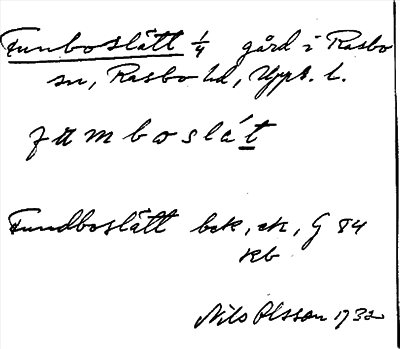 Funboslätt 1/4 gård i Rasbo
sn, Rasbo hd, Uppl. l.
fumboslát
Fundboslätt bek, ek, G 84
kb
Nils Olsson 1932